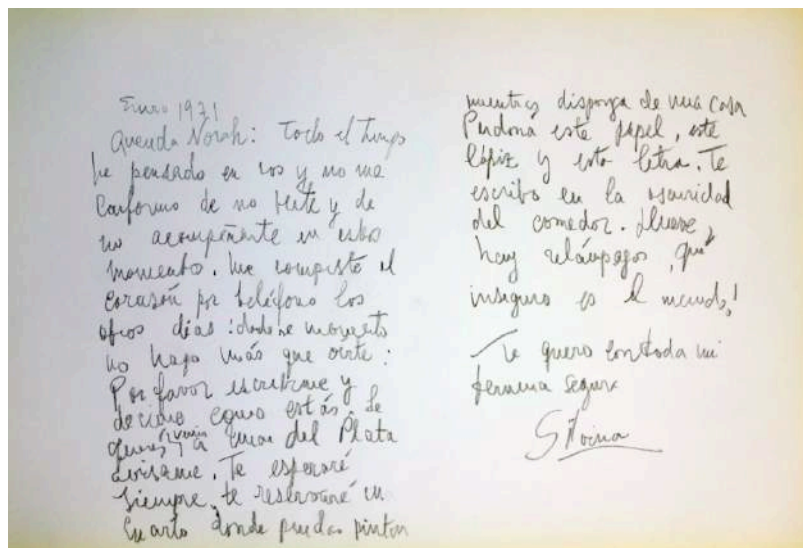 Enero 1971
Querida Norah: Todo el tiempo
he pensado en vos y no me
conformo de no verte y de
no acompañarte en estos
momentos. Me rompiste el
corazón por teléfono los
otros días: desde ese momento
no hago más que oirte:
Por favor escribime y
decime como estás. Si
querés venir a Mar del Plata
avisame. Te esperaré
siempre, te reservaré un
cuarto donde puedas pintar
mientras disponga de una casa
Perdona este papel, este
lápiz y esta letra. Te
escribo en la oscuridad
del comedor. Llueve,
hay relámpagos, qué
inseguro es el mundo!
Te quiero con toda mi
ternura segura
Silvina